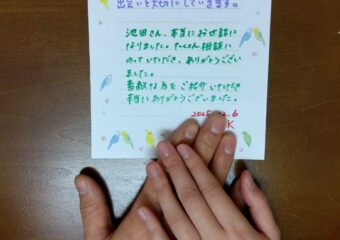 出会いを大切にしていきます。
池田さん、本当にお世話に
なりました。たくさん相談に
のっていただき、ありがとうござい
ました。
素敵な方をご紹介いただき
本当にありがとうございました。
K